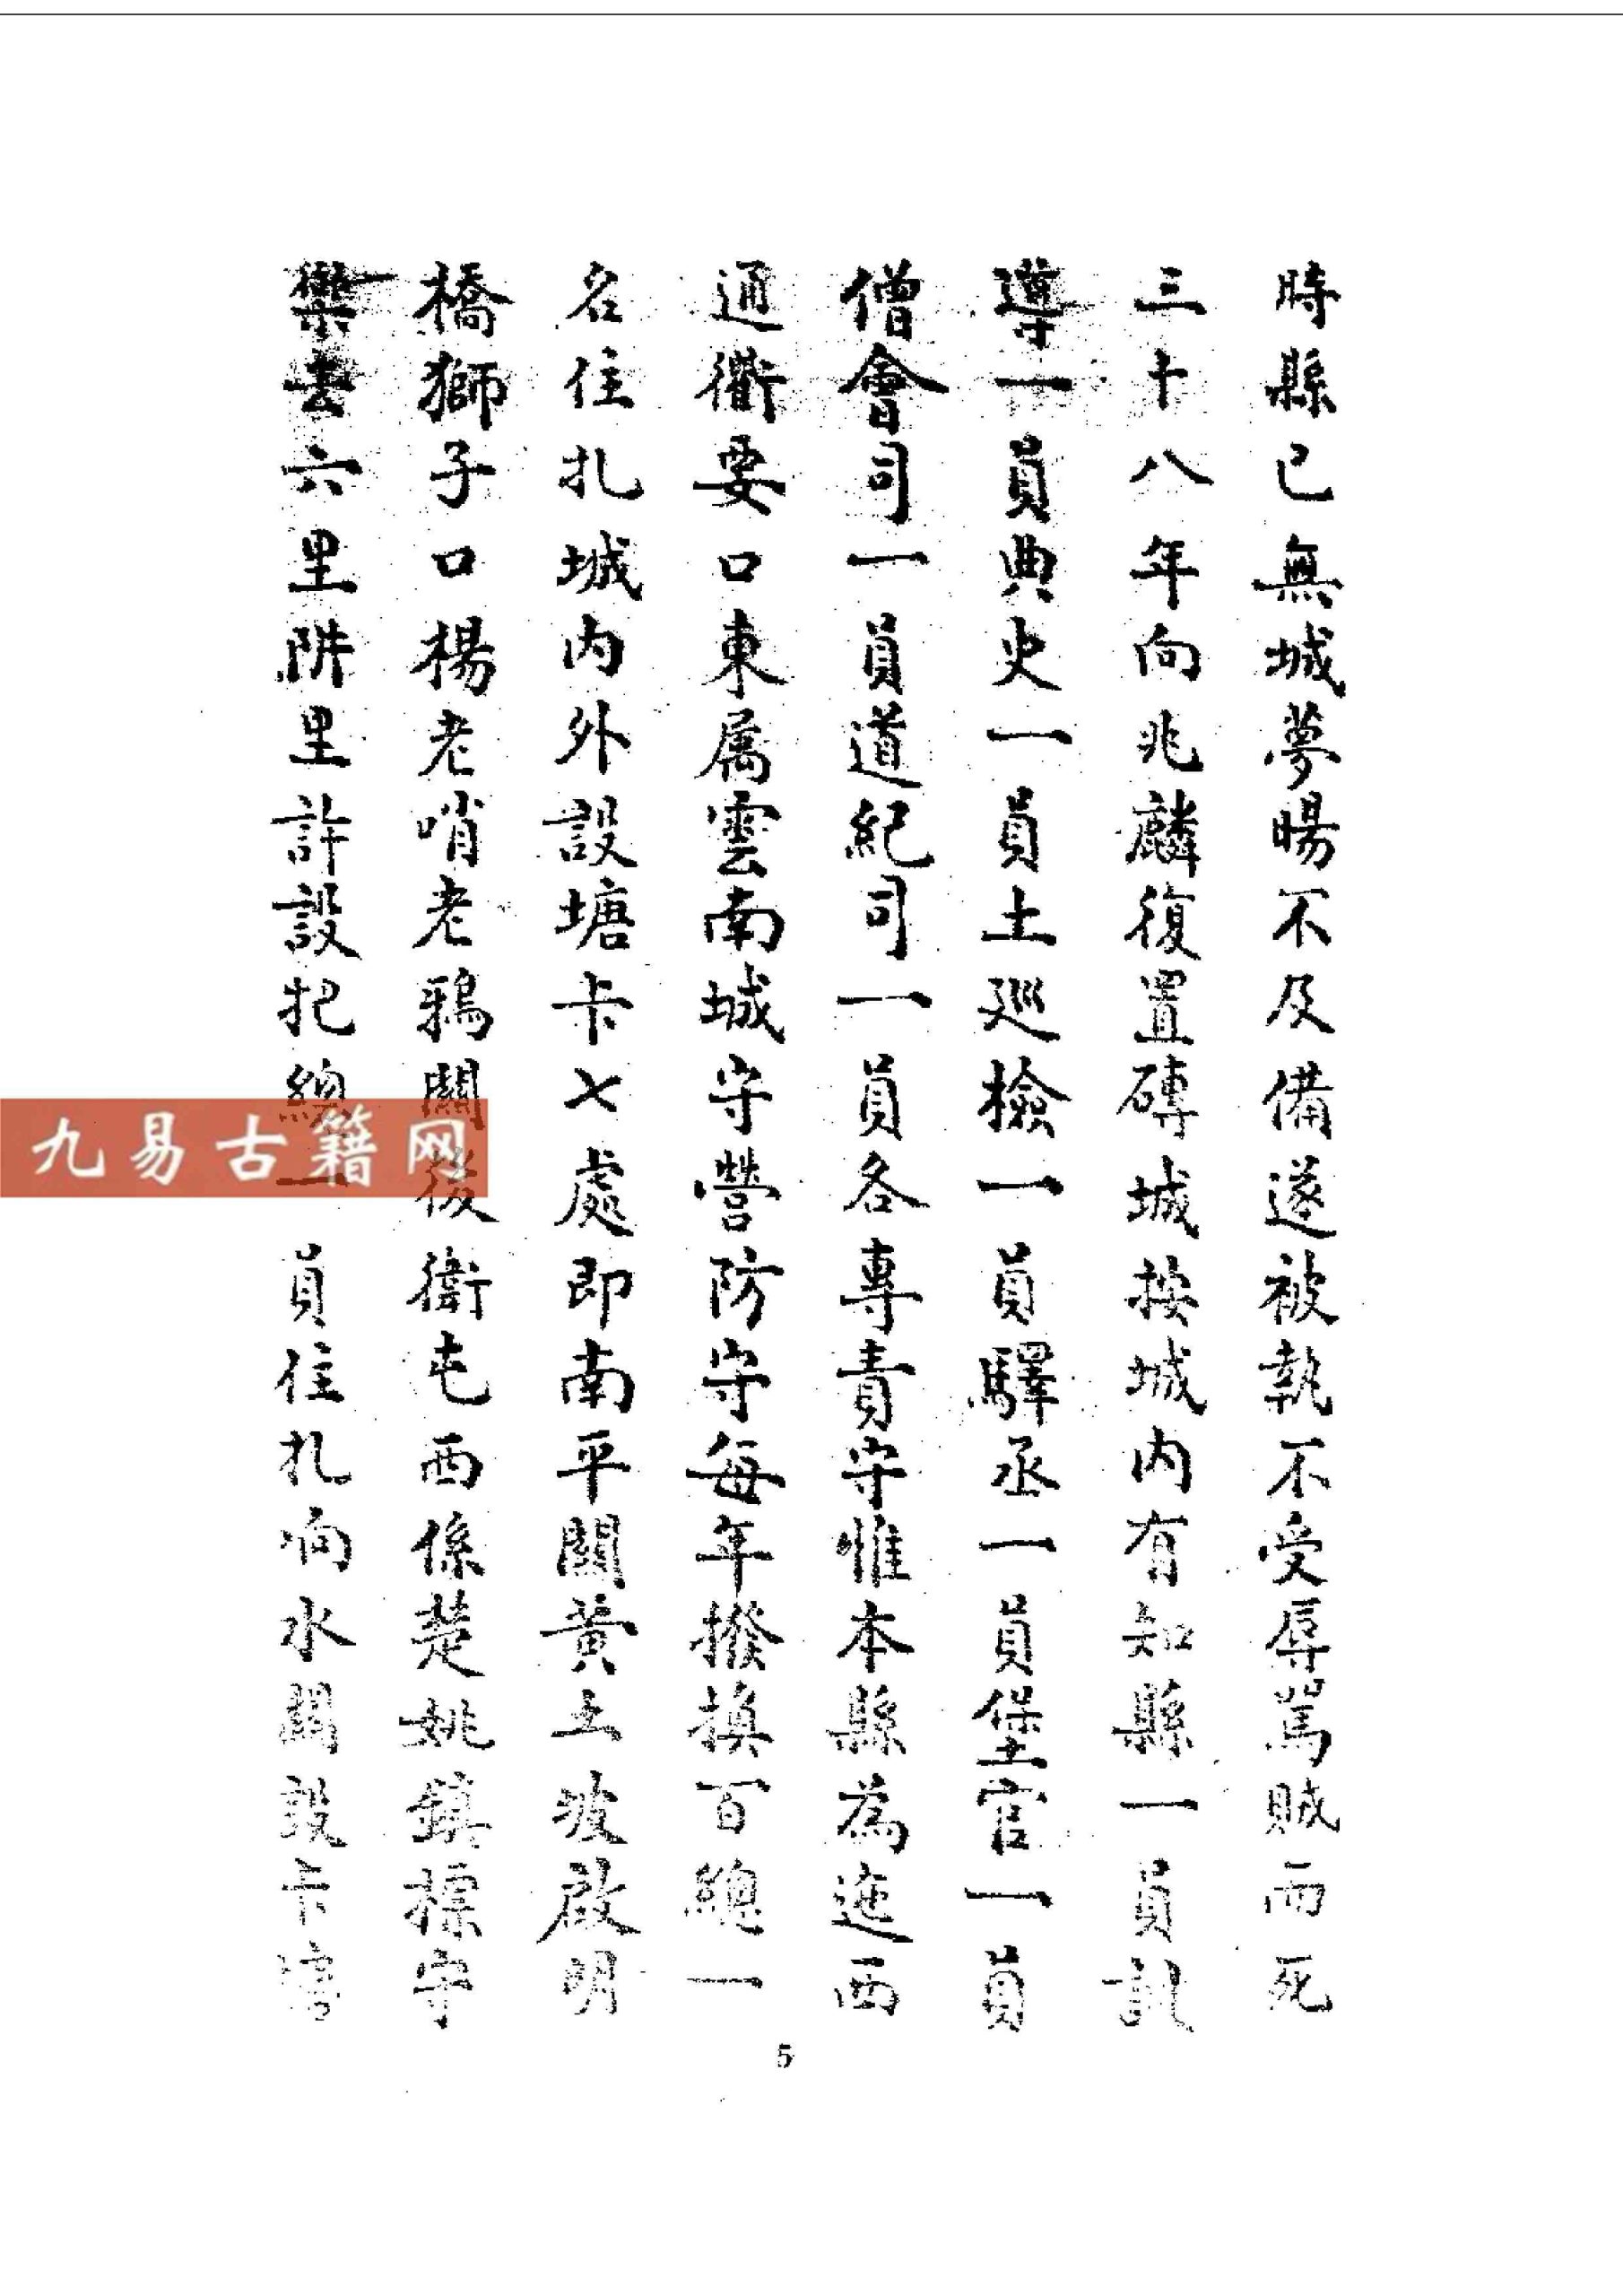 時縣已無城夢暘不及備遂被執不受辱罵賊而死
三十八年向兆麟復置磚城按城内有知縣一員訓
導一員典史一員土巡檢一員驛丞一員堡官一員
僧會司一員道紀司一員各專責守惟本縣為迤西
通衢要口東属雲南城守營防守每年撥換百總一
名住扎城内外設塘卡七處即南平關黃土坡啟明
橋獅子口楊老哨老鴉關後衛屯西係楚姚鎮標守
樂去六里阱里許設把總一員住扎响水關設卡塘
九易古籍网
5